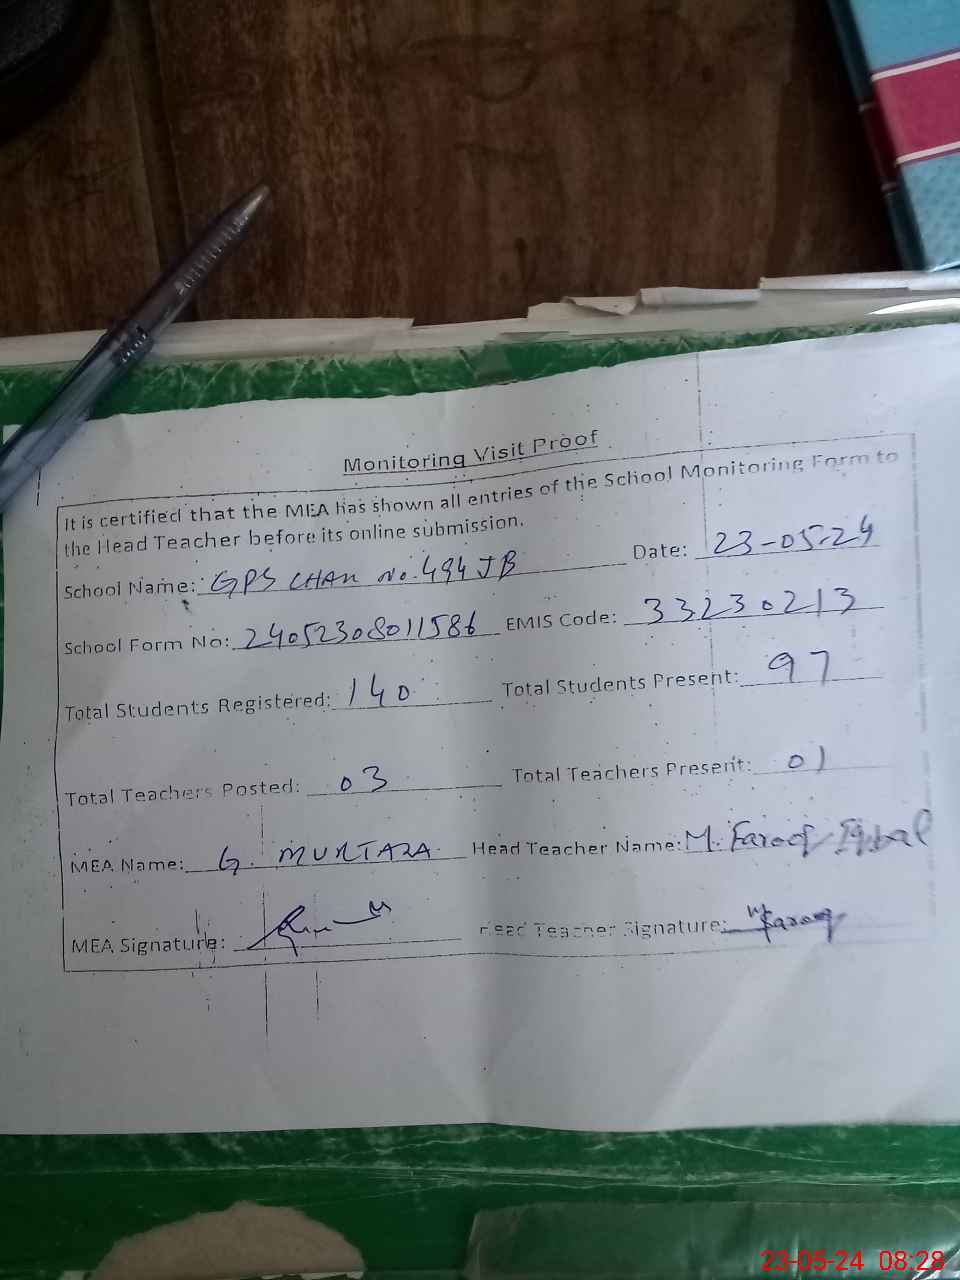 Monitoring Visit Proof
It is certified that the MEA has shown all entries of the School Monitoring Form to
the Head Teacher before its online submission.
School Name: GPS CHAK No. 494 JB Date: 23-05-24
School Form No: 24052308011586 EMIS Code: 33230213
Total Students Registered: 140 Total Students Present: 97
Total Teachers Posted: 03 Total Teachers Present: 01
MEA Name: G. MURTAZA Head Teacher Name: M. Farooq Iqbal
MEA Signature: Head Teacher Signature: M Farooq
23-05-24 08:28